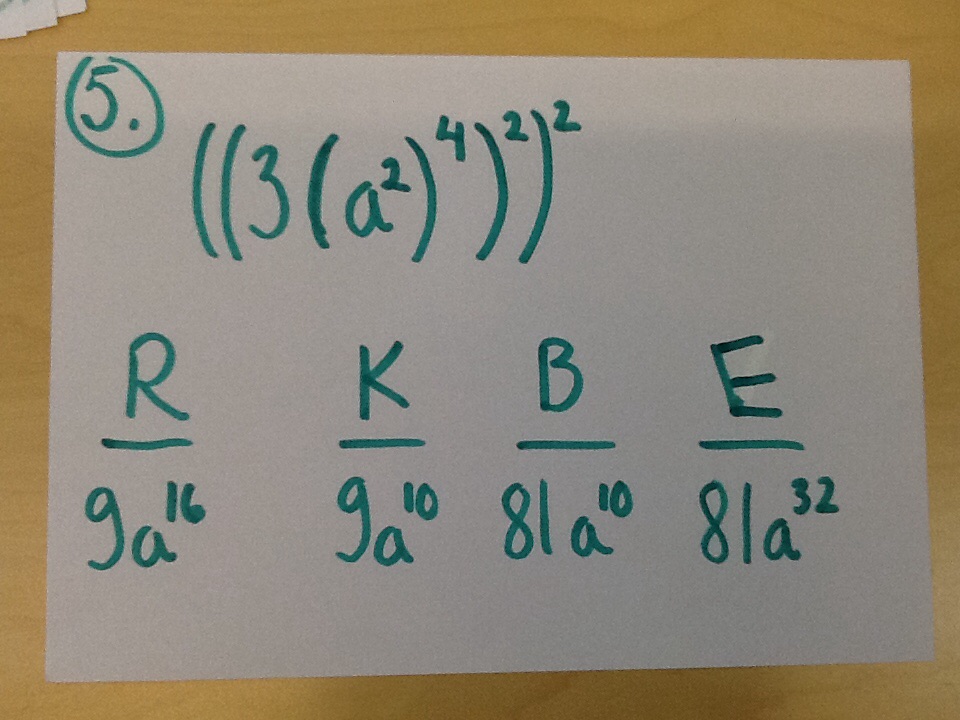 5.
((3(a²)⁴)²)²
R K B E
9a¹⁶ 9a¹⁰ 81a¹⁰ 81a³²